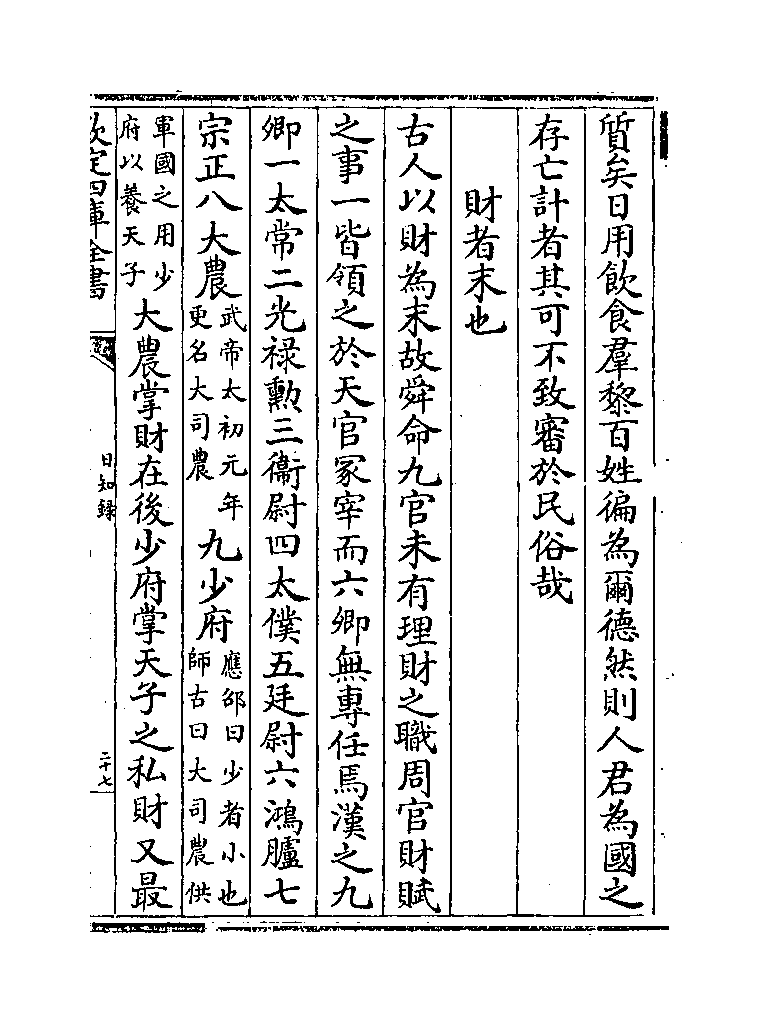 質矣日用飲食羣黎百姓徧為爾德然則人君為國之
存亡計者其可不致審於民俗哉
財者末也
古人以財為末故舜命九官未有理財之職周官財賦
之事一皆領之於天官冢宰而六卿無專任焉漢之九
卿一太常二光祿勲三衞尉四太僕五廷尉六鴻臚七
宗正八大農武帝太初元年更名大司農九少府應邵曰少者小也師古曰大司農供
軍國之用少府以養天子大農掌財在後少府掌天子之私財又最
欽定四庫全書
日知録
二十七